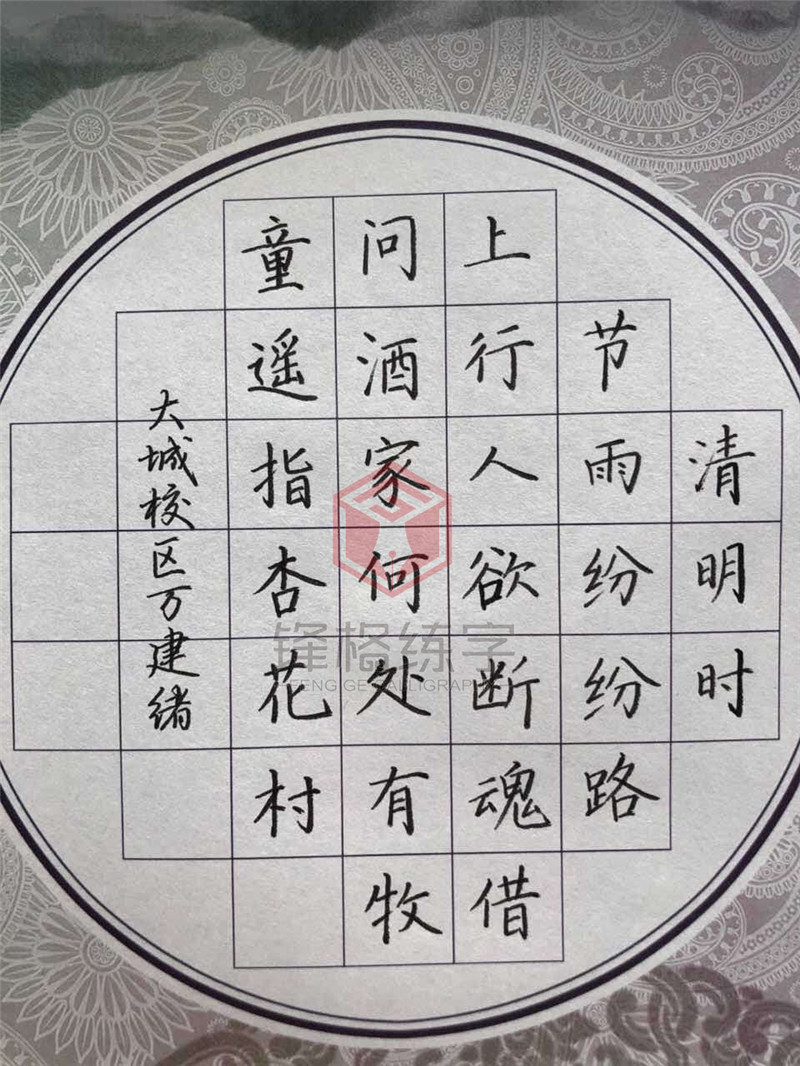 清明时
节雨纷纷路
上行人欲断魂借
问酒家何处有牧
童遥指杏花村
大城校区万建绪
锋格练字
FENG GE CALLIGRAPHY